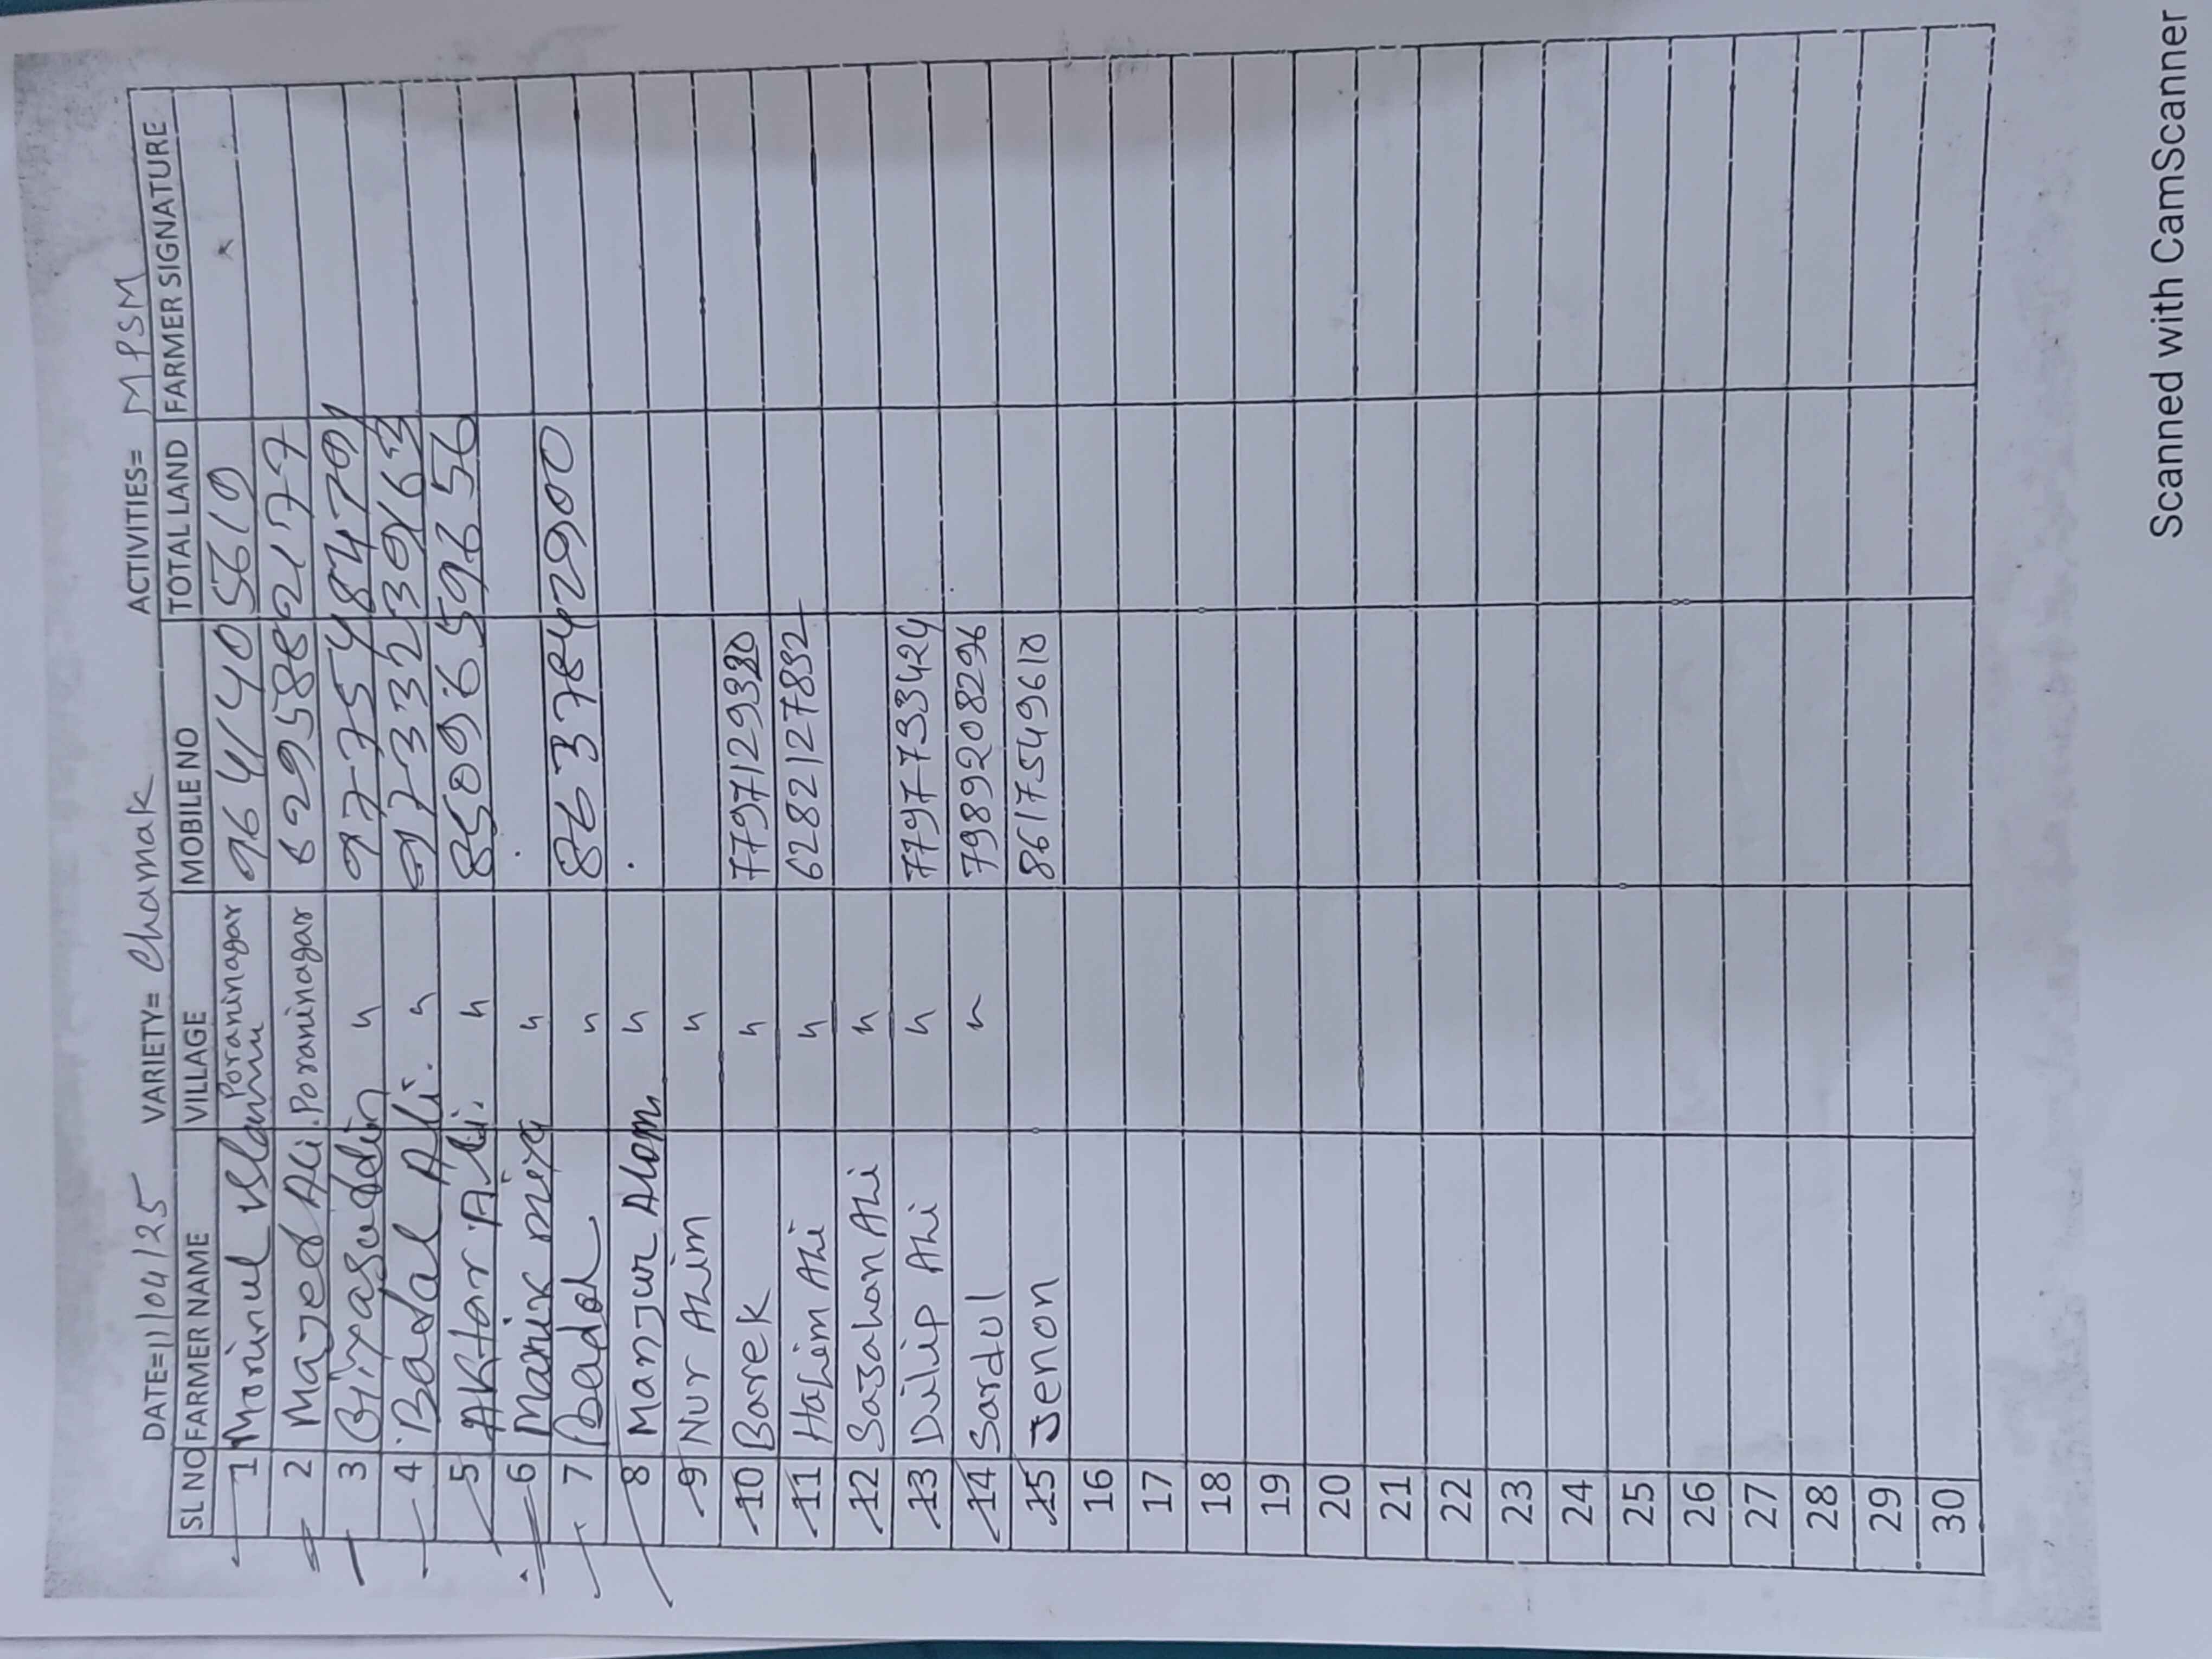 DATE=11/04/25 VARIETY= Chamak ACTIVITIES= MPSM
SL NO FARMER NAME VILLAGE MOBILE NO TOTAL LAND FARMER SIGNATURE
1 Morinul Islamu Poraninagar 9641405619
2 Majed Ali. Poraninagar 6295882177
3 Giyasuddin " 9775484791
4 Badal Ali. " 9733239163
5 AKHtar Ali. "
6 Manik miya "
7 Badol " 8637842900
8 Manjur Alom "
9 Nur ALim "
10 Barek "
11 HaLim ALi " 6282127832
12 SaJahan ALi "
13 Dilip ALi " 7797733424
14 Sardul " 7989208296
15 Jenon 8617549610
16
17
18
19
20
21
22
23
24
25
26
27
28
29
30
Scanned with CamScanner